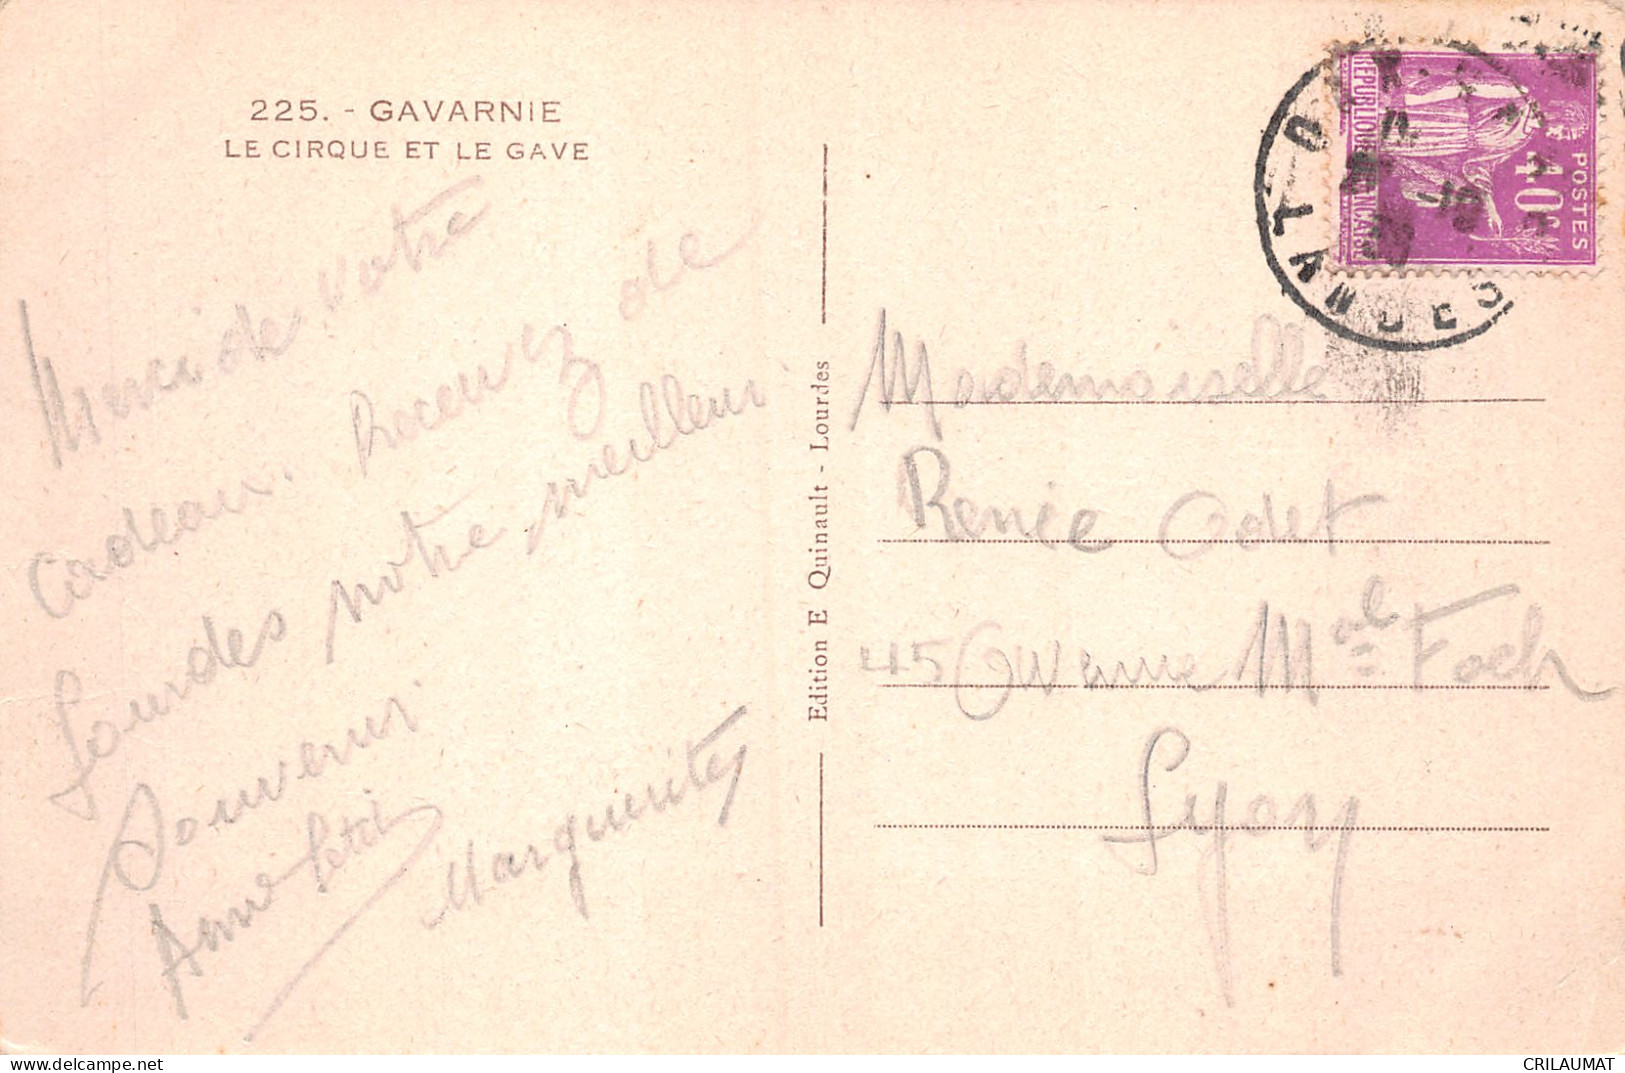 225. - GAVARNIE
LE CIRQUE ET LE GAVE
Merci de votre
cadeau. Recevez de
Lourdes notre meilleur
Souvenir.
Anne
Marguerite
Edition E Quinault - Lourdes
RÉPUBLIQUE FRANÇAISE
POSTES
40c
Mademoiselle
Renée Odet
45 Avenue Mal Foch
Lyon
delcampe.net
CRILAUMAT